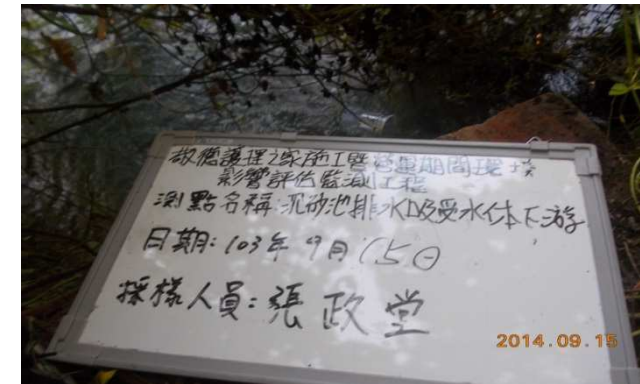 敬德護理之家施工暨營運期間環境
影響評估監測工程
測點名稱:沉砂池排水口及受水体下游
日期:103年9月15日
採樣人員:張政堂
2014.09.15